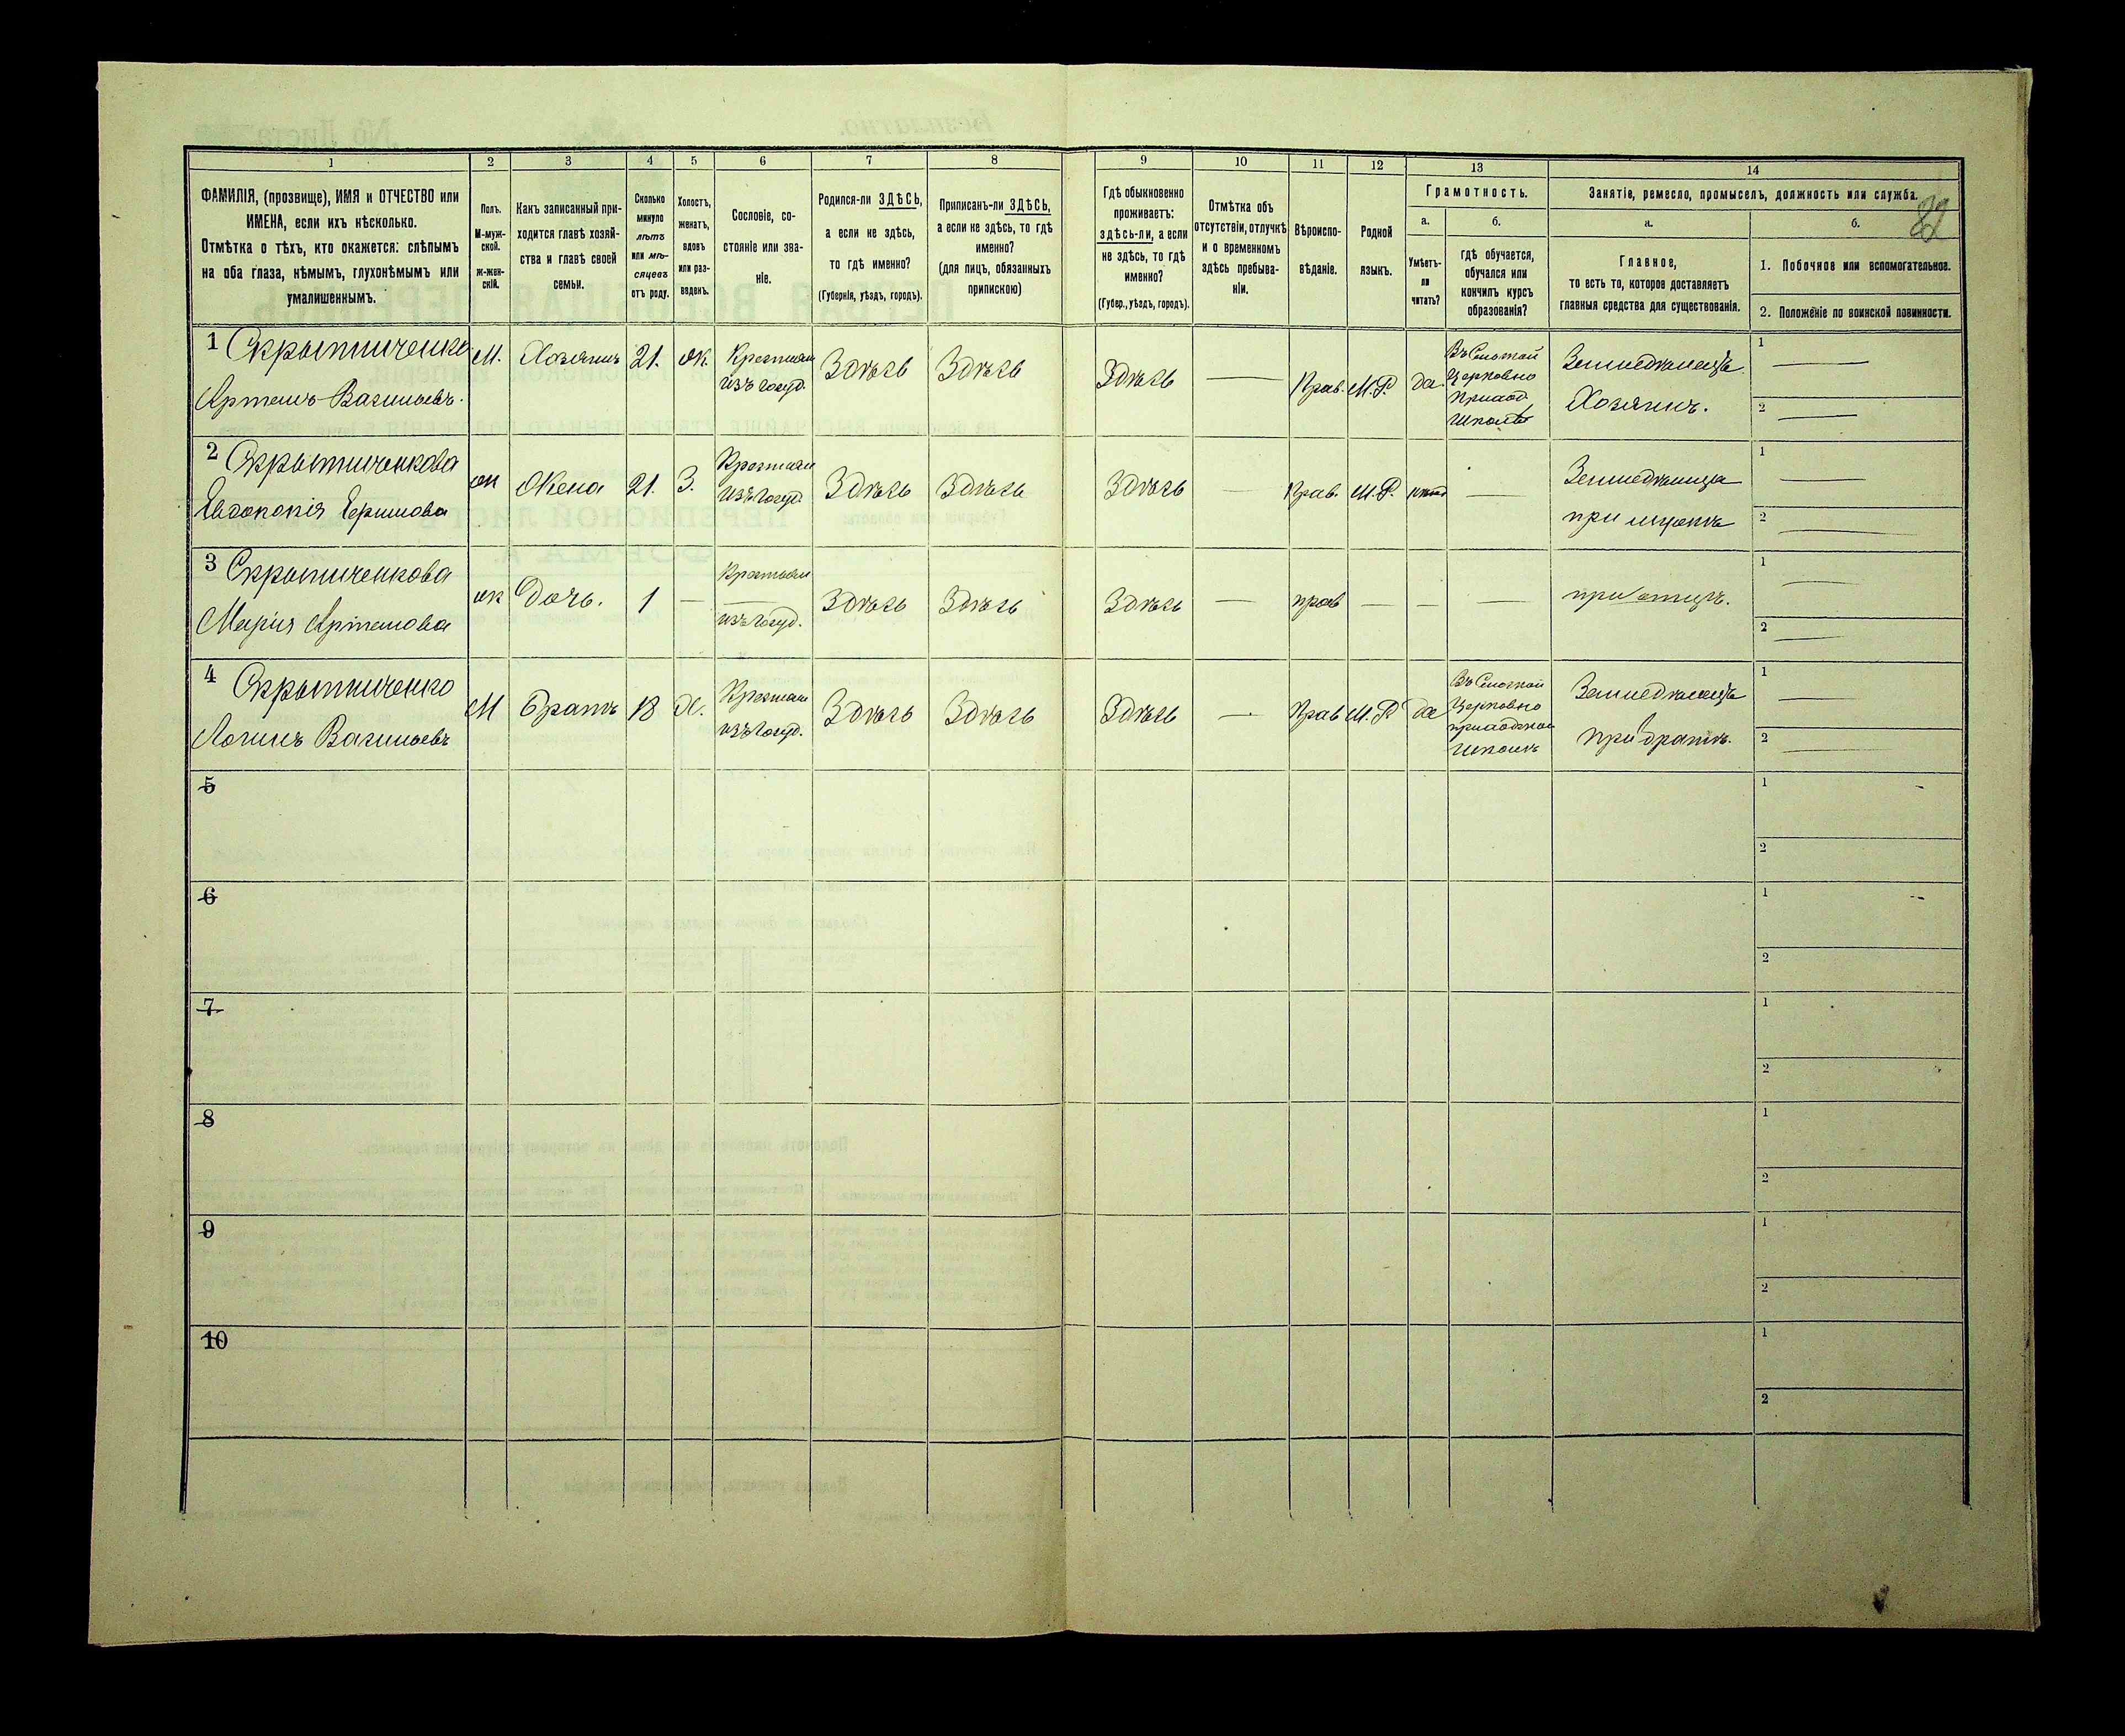 1 2 3 4 5 6 7 8 9 10 11 12 13 14
ФАМИЛІЯ, (прозвище), ИМЯ и ОТЧЕСТВО или
ИМЕНА, если ихъ нѣсколько.
Отмѣтка о тѣхъ, кто окажется: слѣпымъ
на оба глаза, нѣмымъ, глухонѣмымъ или
умалишеннымъ.
Полъ.
М-муж-
ской.
Ж-жен-
скій.
Какъ записанный при-
ходится главѣ хозяй-
ства и главѣ своей
семьи.
Сколько
минуло
лѣтъ
или мѣ-
сяцевъ
отъ роду.
Холостъ,
женатъ,
вдовъ
или раз-
веденъ.
Сословіе, со-
стояніе или зва-
ніе.
Родился-ли ЗДѢСЬ,
а если не здѣсь,
то гдѣ именно?
(Губернія, уѣздъ, городъ).
Приписанъ-ли ЗДѢСЬ,
а если не здѣсь, то гдѣ
именно?
(для лицъ, обязанныхъ
припискою)
Гдѣ обыкновенно
проживаетъ:
здѣсь-ли, а если
не здѣсь, то гдѣ
именно?
(Губер., уѣздъ, городъ).
Отмѣтка объ
отсутствіи, отлучкѣ
и о временномъ
здѣсь пребыва-
ніи.
Вѣроиспо-
вѣданіе.
Родной
языкъ.
Грамотность.
а.
Умѣетъ-
ли
читать?
б.
гдѣ обучается,
обучался или
кончилъ курсъ
образованія?
Занятіе, ремесло, промыселъ, должность или служба.
а.
Главное,
то есть то, которое доставляетъ
главныя средства для существованія.
б.
1. Побочное или вспомогательное.
2. Положеніе по воинской повинности.
1 Скрытниченко
Артемъ Васильевъ.
М.
Хозяинъ
21.
Ж.
Крестьян
изъ госуд.
Здѣсь
Здѣсь
Здѣсь
—
Прав.
М.Р.
да.
Церковно
Приход.
Школѣ
Земледѣлецъ
Хозяинъ.
1 —
2 —
2 Скрытниченкова
Евдокія
ж
Жена
21.
З.
Крестьян
изъ госуд.
Здѣсь
Здѣсь
Здѣсь
—
Прав.
М.Р.
—
Земледѣлица
при мужѣ
1 —
2 —
3 Скрытниченкова
Марія Артемова
ж
Дочь.
1
—
Крестьян
изъ госуд.
Здѣсь
Здѣсь
Здѣсь
—
прав
—
—
—
при отцѣ.
1 —
2 —
4 Скрытниченко
Логинъ Васильевъ
М
Братъ
18
Х.
Крестьян
изъ госуд.
Здѣсь
Здѣсь
Здѣсь
—
Прав
М.Р
да
Церковно
приходской
Школѣ
Земледѣлецъ
при братѣ.
1 —
2 —
5
1
2
6
1
2
7
1
2
8
1
2
9
1
2
10
1
2